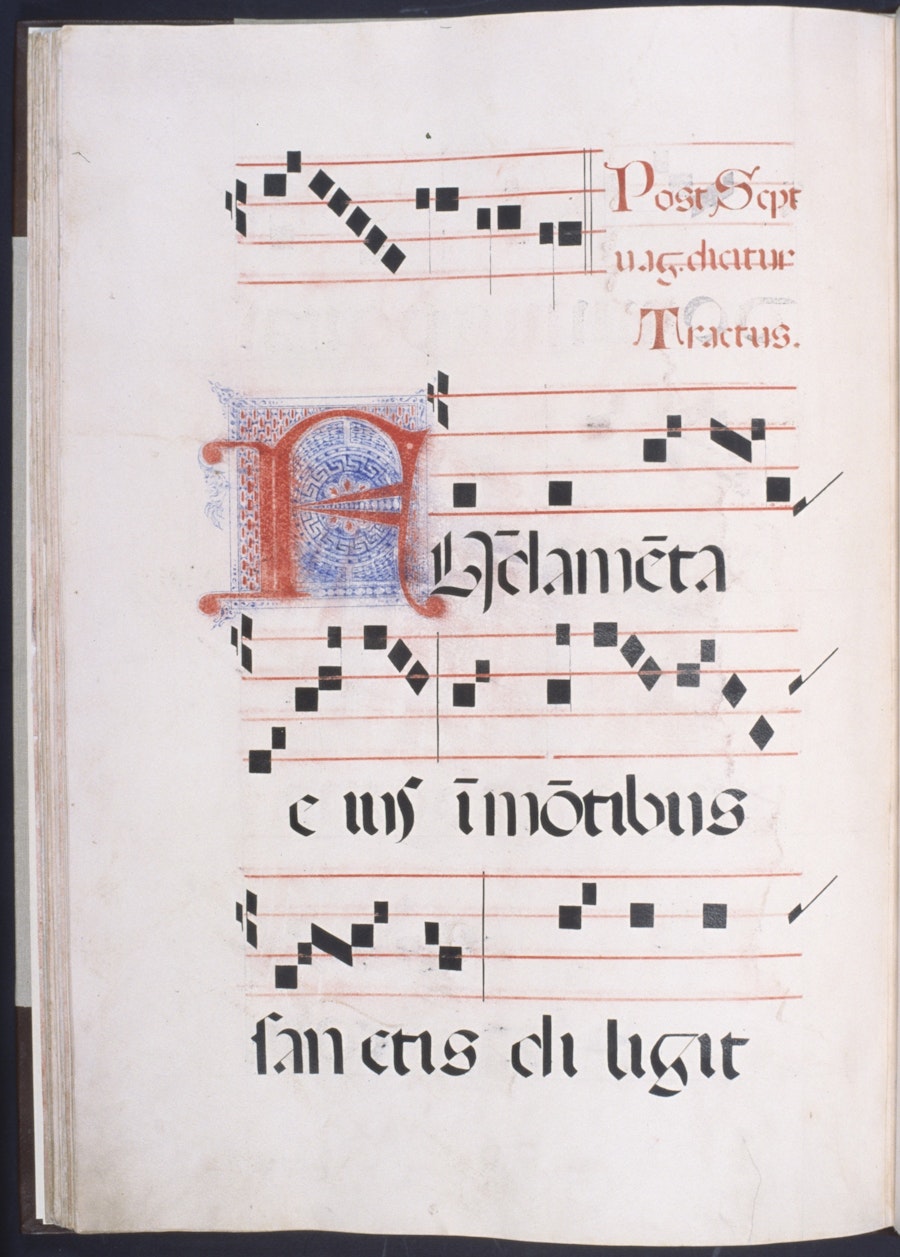 Post Sept
uag. dicitur
Tractus.
FŪdamēta
e ius īmōtibus
ſan ctis di ligit